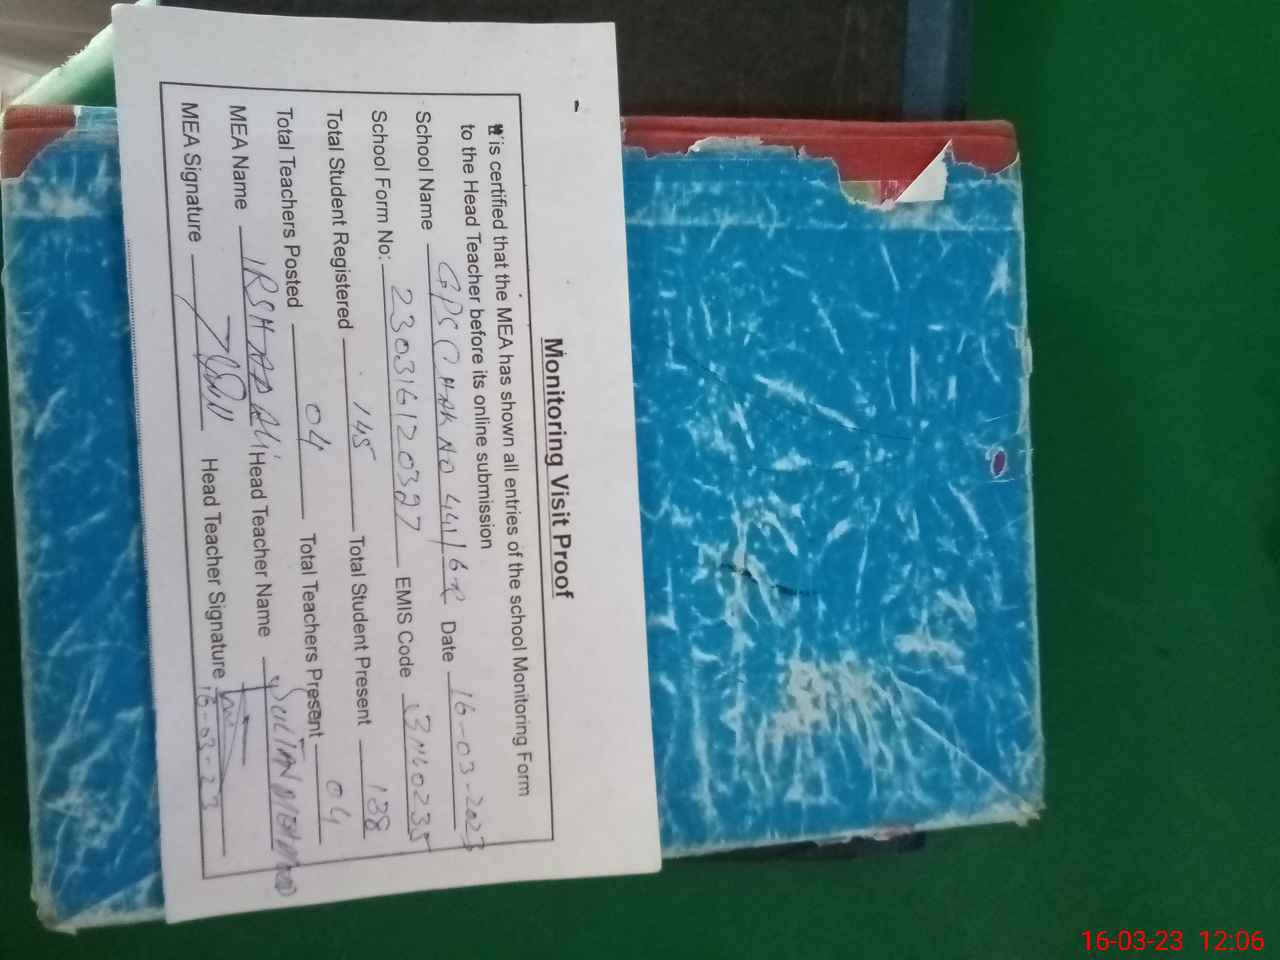 Monitoring Visit Proof
It is certified that the MEA has shown all entries of the school Monitoring Form
to the Head Teacher before its online submission
School Name GPS CHAK NO 441/6-R Date 16-03-2023
School Form No: 230316120327 EMIS Code
Total Student Registered 145 Total Student Present 138
Total Teachers Posted 04 Total Teachers Present 04
MEA Name IRSHAD Ali Head Teacher Name SULTAN MEHMOOD
MEA Signature Head Teacher Signature
16-03-23
16-03-23 12:06